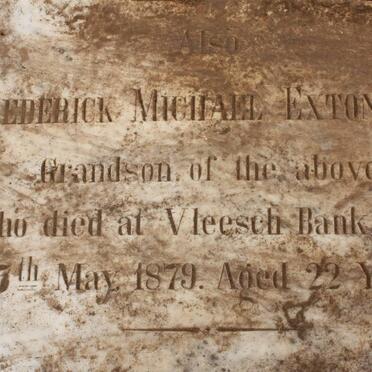 Also
EDERICK MICHAEL EXTON
Grandson of the above
ho died at Vleesch Bank
th May 1879. Aged 22 Y